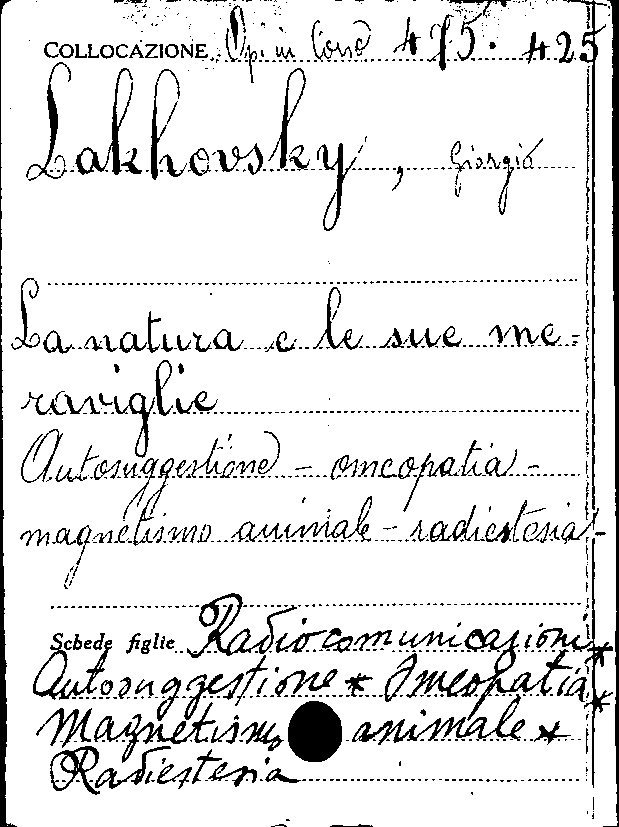 COLLOCAZIONE Op. in Cons 475. 425
Lakhovsky, Giorgio
La natura e le sue me-
raviglie
Autosuggestione - omeopatia -
magnetismo animale - radiestesia -
Schede figlie Radiocomunicazioni *
Autosuggestione * Omeopatia *
Magnetismo animale *
Radiestesia